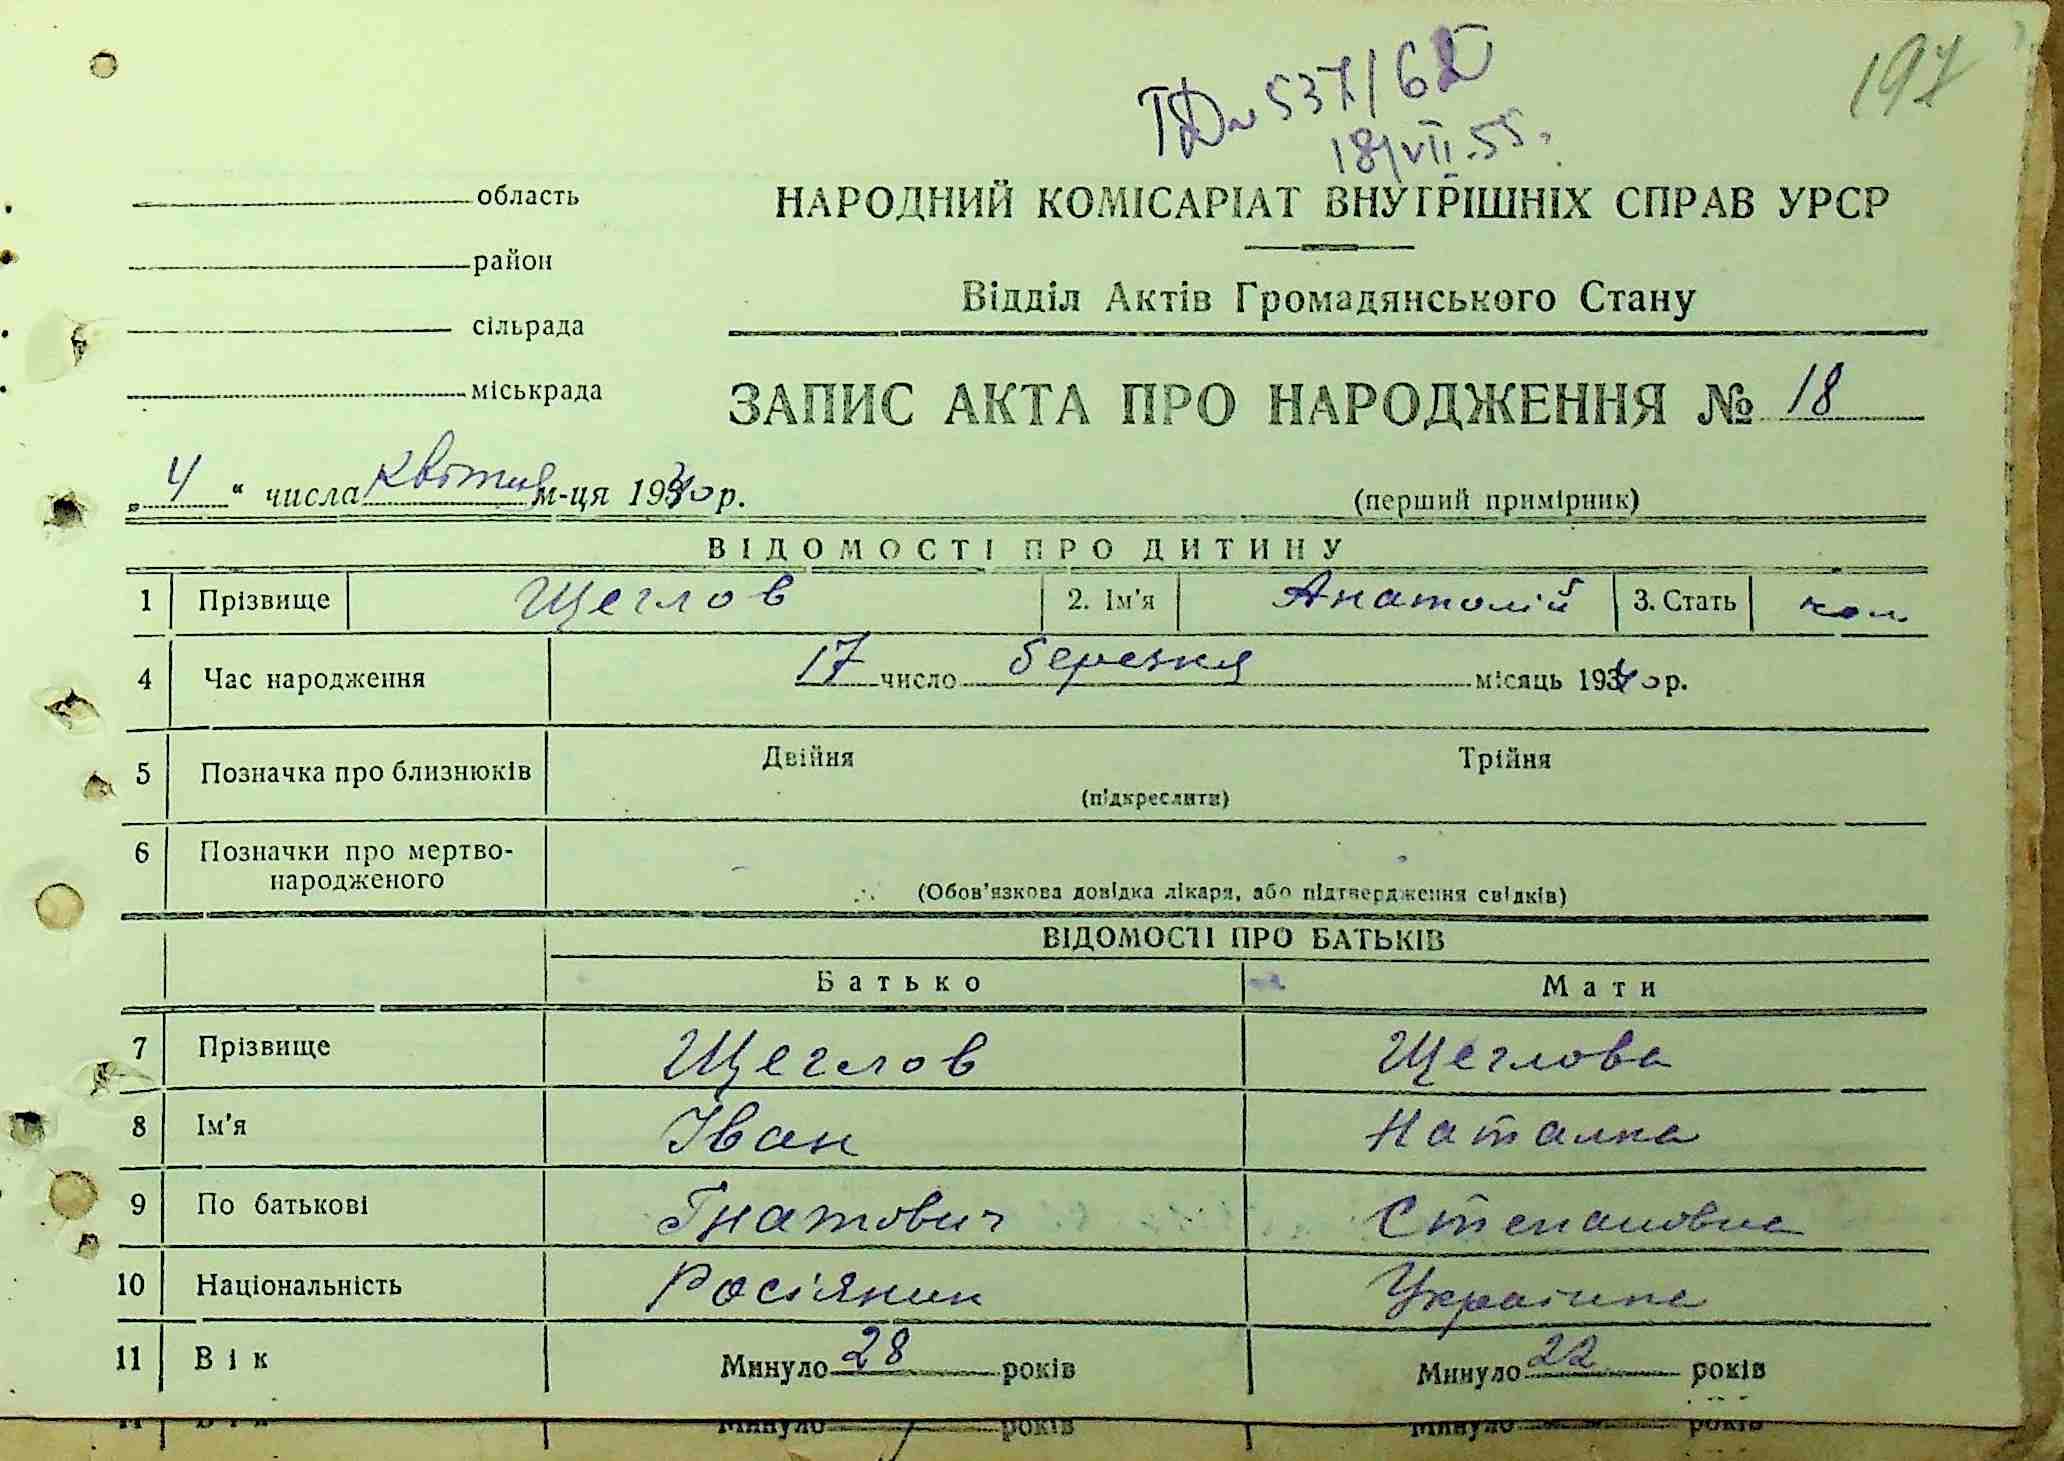 197
537/62
18/VII.55.
область
район
сільрада
міськрада
НАРОДНИЙ КОМІСАРІАТ ВНУТРІШНІХ СПРАВ УРСР
Відділ Актів Громадянського Стану
ЗАПИС АКТА ПРО НАРОДЖЕННЯ № 18
„ 4 “ числа квітня м-ця 1940 р.
(перший примірник)
ВІДОМОСТІ ПРО ДИТИНУ
1 Прізвище Щеглов 2. Ім'я Анатолій 3. Стать чол
4 Час народження 17 число березня місяць 1940 р.
5 Позначка про близнюків Двійня Трійня
(підкреслити)
6 Позначки про мертво-
народженого
(Обов'язкова довідка лікаря, або підтвердження свідків)
ВІДОМОСТІ ПРО БАТЬКІВ
Батько Мати
7 Прізвище Щеглов Щеглова
8 Ім'я Іван Наталка
9 По батькові Гнатович Степановна
10 Національність Росіянин Українка
11 Вік Минуло 28 років Минуло 22 років
Вік Минуло років Минуло років